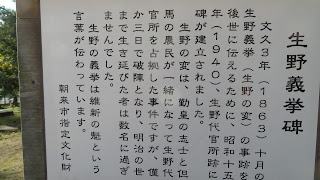 生野義挙碑
文久3年(1863)十月の
生野義挙(生野の変)の事跡を
後世に伝えるために、昭和十五
年(1940)、生野代官所跡に
碑が建立されました。
生野の変は、勤皇の志士と但
馬の農民が一緒になって生野代
官所を占拠した事件ですが、僅
か三日で破陣となり、明治の世
まで生き延びた者は数名に過ぎ
ませんでした。
生野の義挙は維新の魁という
言葉が伝わっています。
朝来市指定文化財